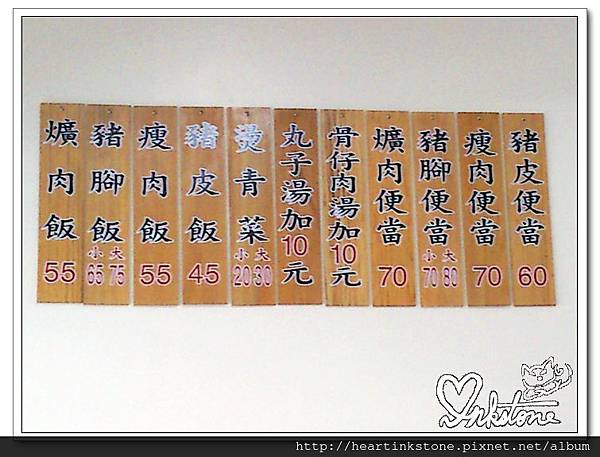 爌肉飯 55
豬腳飯 小65 大75
瘦肉飯 55
豬皮飯 45
燙青菜 小20 大30
丸子湯加10元
骨仔肉湯加10元
爌肉便當 70
豬腳便當 小70 大80
瘦肉便當 70
豬皮便當 60
Inkstone
http://heartinkstone.pixnet.net/album